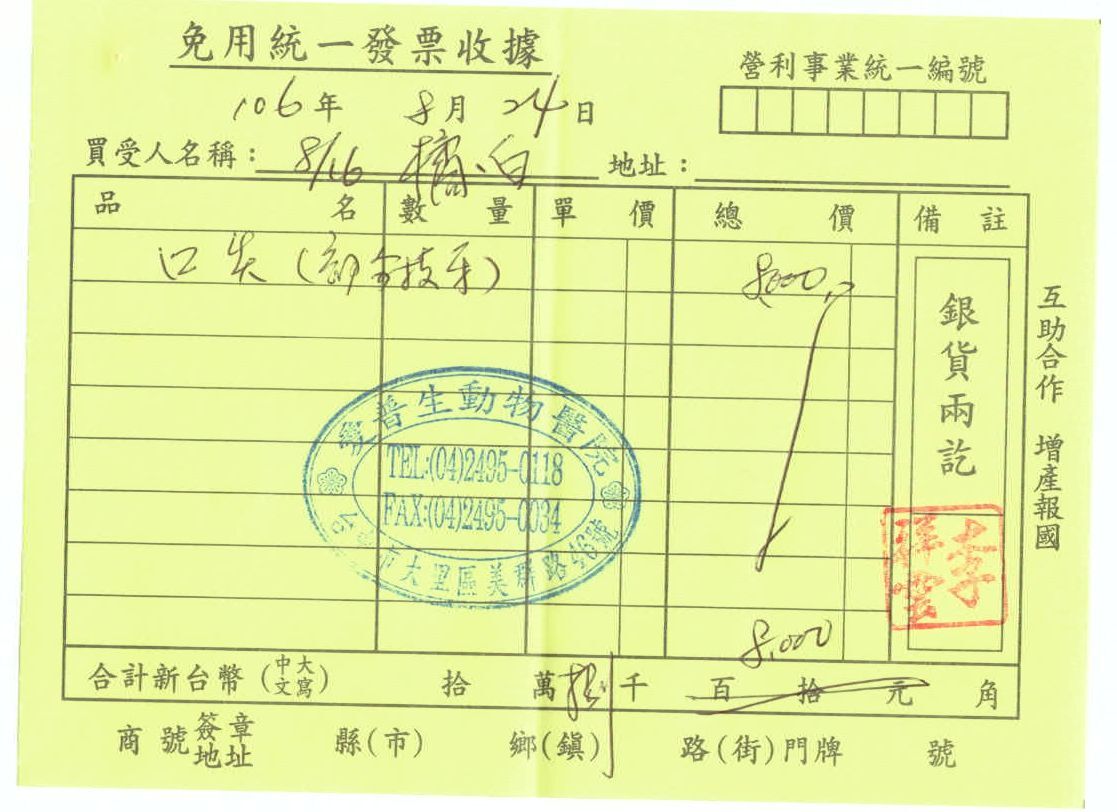 免用統一發票收據
營利事業統一編號
106年 8月 24日
買受人名稱： 8/16 橘小白 地址：
品名 數量 單價 總價 備註
口炎(部分拔牙) 8,000
銀貨兩訖
互助合作 增產報國
普生動物醫院
TEL:(04)2495-0118
FAX:(04)2495-0034
市大里區美群路46號
李
祥雲
8,000
合計新台幣(中文大寫) 拾 萬 捌 千 百 拾 元 角
商號簽章地址 縣(市) 鄉(鎮) 路(街)門牌 號